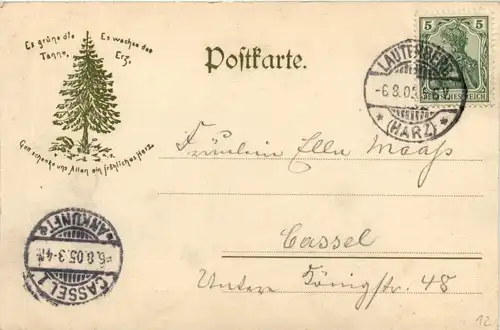 Es grüne die Tanne,
Es wachse das Erz,
Gott schenke uns Allen ein fröhliches Herz.
Postkarte.
5 5
DEUTSCHES REICH
LAUTERBERG
-6.8.05
(HARZ)
Fräulein Ella Maaß
Cassel
Untere Königstr. 48
ANKUNFT
-6.8.05.3-4
CASSEL
12